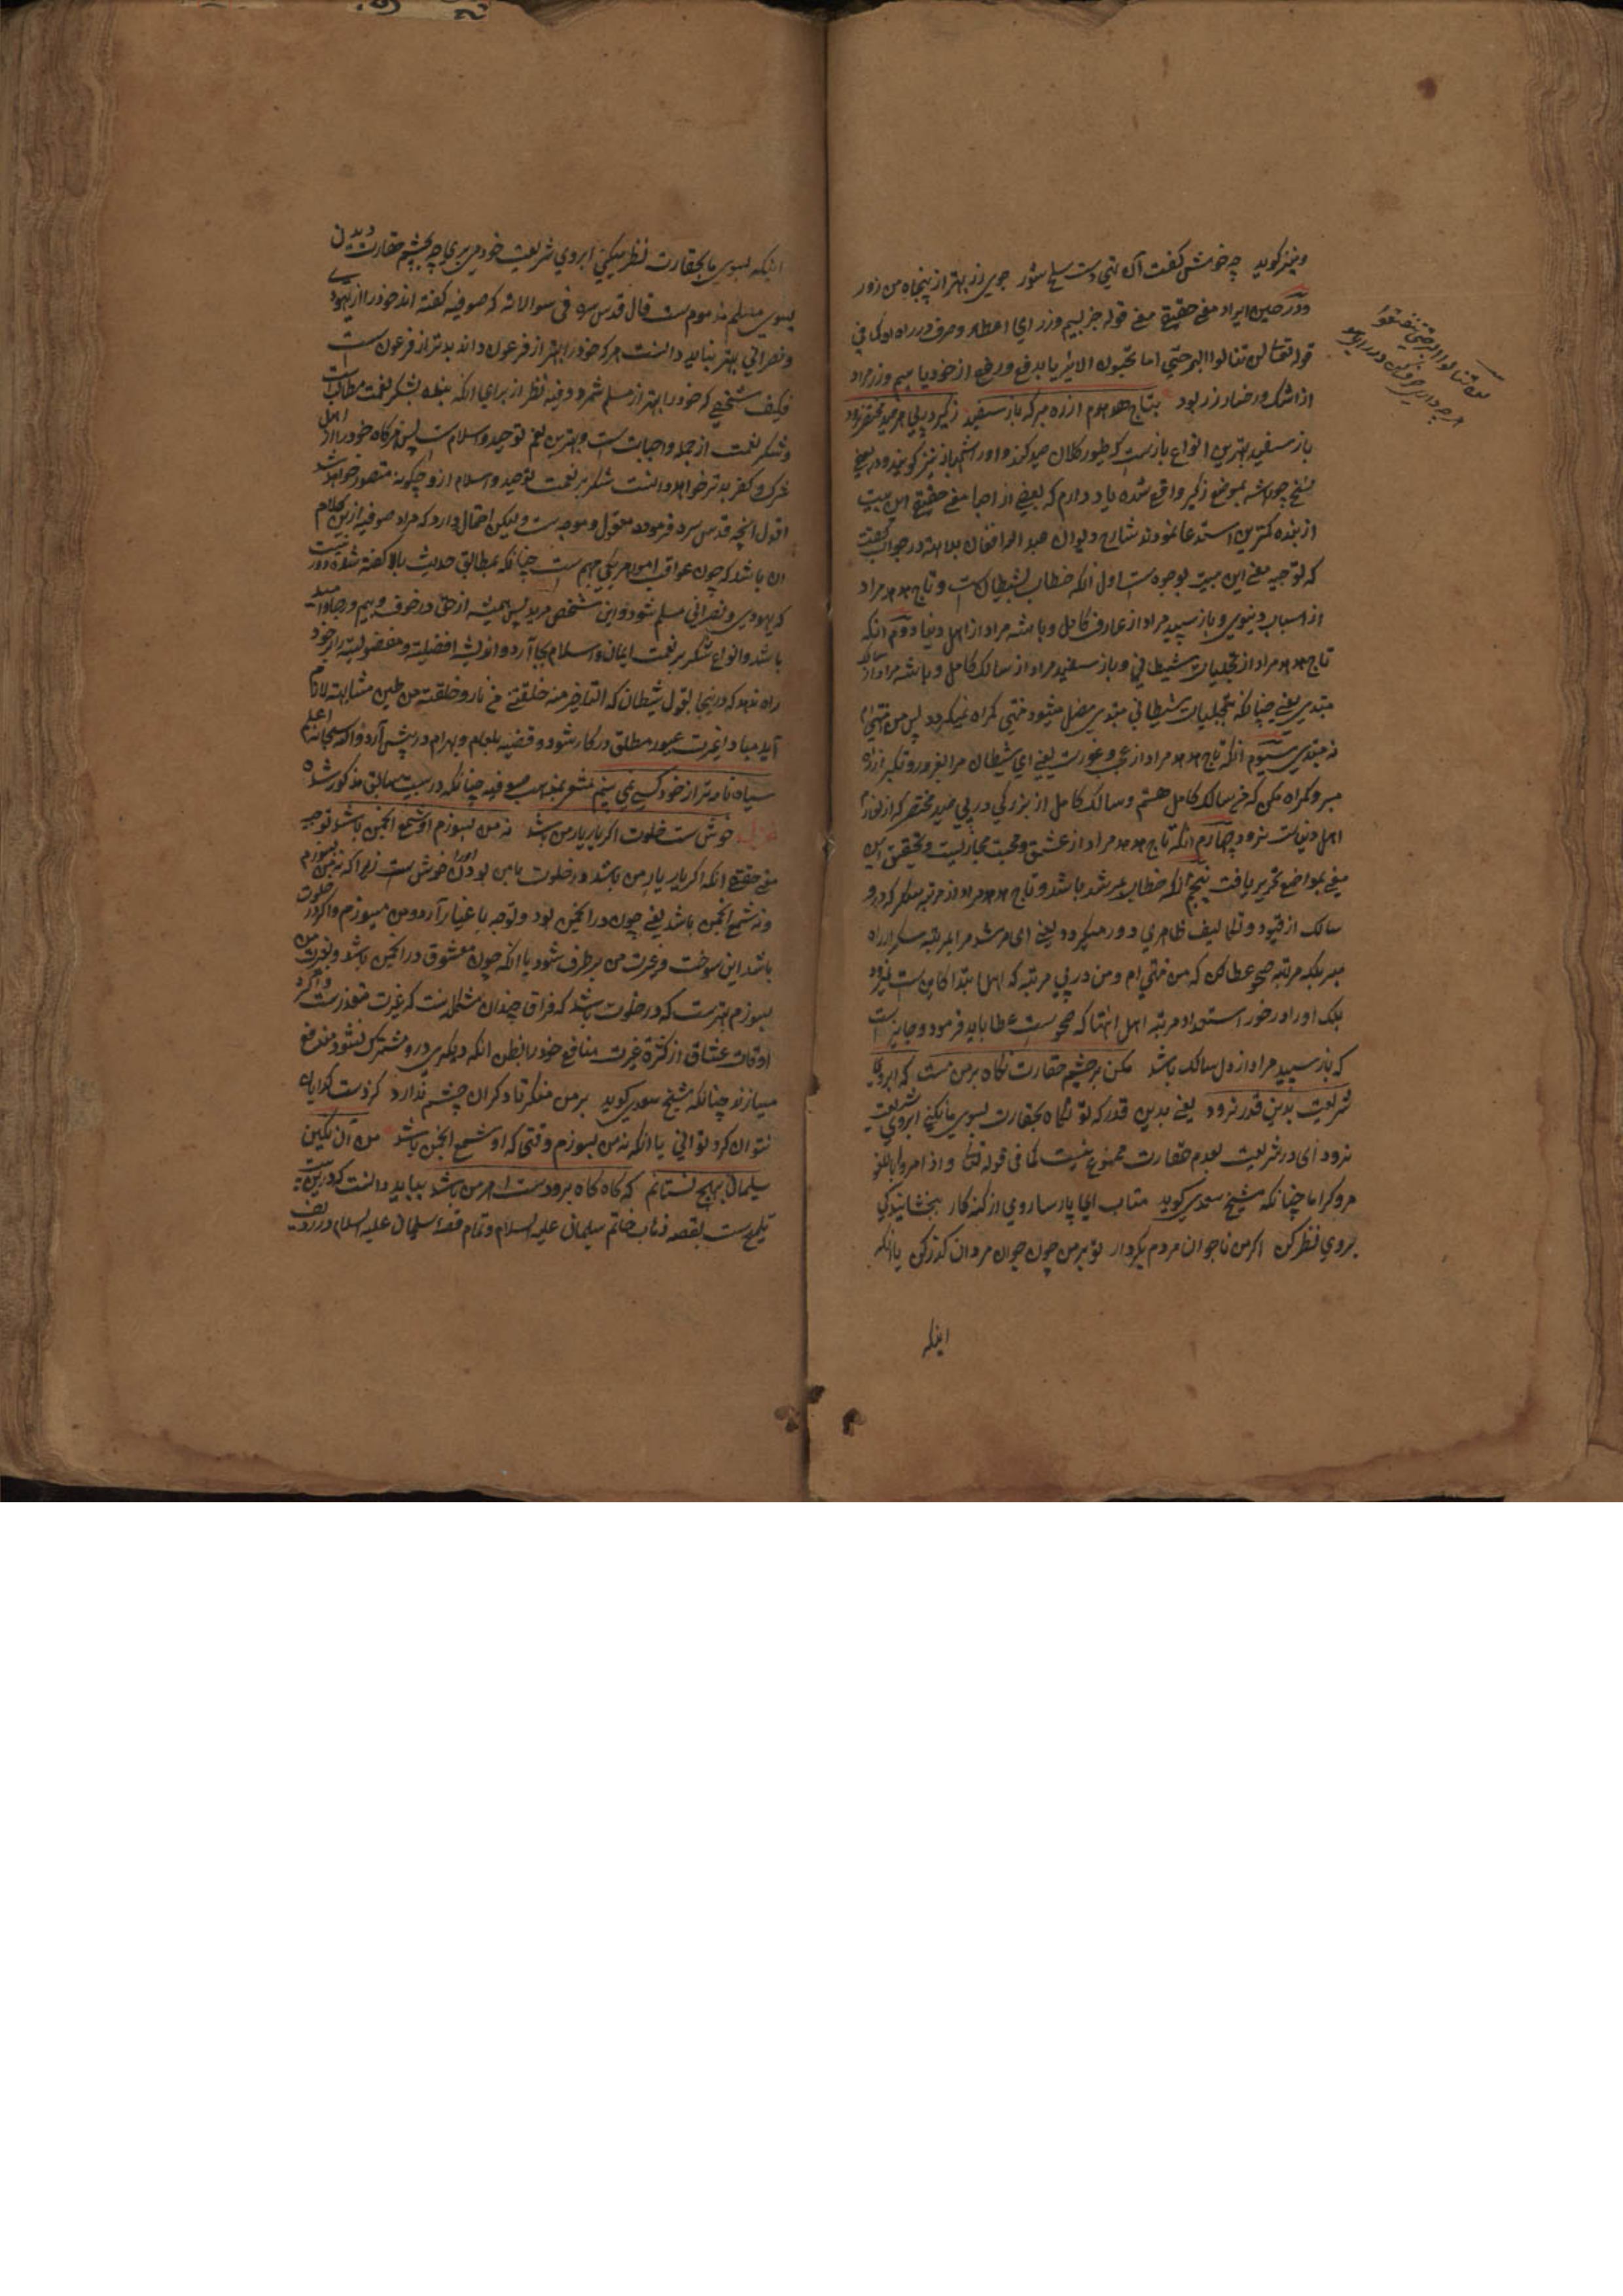 ونیز کوید چه خوش کفت آن تهی دست سلحشور جوی زر بهتر از پنجاه من زور
ودر حین ایراد معنی حقیقی معنی قوله جز بسیم وزر ای اعطاء وصرف در راه او کما فی
قوله تعالی لن تنالوا البر حتی اما تحبون الا یثر یا بدفع ورفع از خود یا سیم وزر مراد
از اشک ورخسار زرد بود بتاج هدهدم از ره مبر که باز سفید زکبر در پی هر صید مختصر نرود
باز سفید بهترین انواع بازست که طیور کلان صید کند واورا شهباز نیز کویند ودر بعضی
نسخ چو باشه بموضع زکبر واقع شده یاد دارم که بعضی از احبا معنی حقیقی این بیت
از بنده کمترین استدعا نمودند شارح دیوان عبد الله افغان بداهة در جواب کفت
که توجیه معنی این بیت بوجوه است اول آنکه خطاب بشیطان است وتاج هدهد مراد
از اسباب دنیوی وباز سپید مراد از عارف کامل وباشه مراد از اهل دنیا دوم آنکه
تاج هدهد مراد از تجلیات شیطانی وباز سفید مراد از سالک کامل وباشه مراد از سالک
مبتدی یعنی چنانکه بتجلیات شیطانی مبتدی مضل میشود منتهی کمراه نمیکردد پس من منتهی ام
نه مبتدی سیوم آنکه تاج هدهد مراد از عجب وغرورست یعنی ای شیطان مرا بغرور وتکبر از راه
مبر وکمراه مکن که من سالک کامل هستم وسالک کامل از بزرکی در پی صید مختصر که از لوازم
اهل دنیاست نرود چهارم آنکه تاج هدهد مراد از عشق ومحبت مجازیست وتحقیق این
معنی بمواضع تحریر یافت پنجم آنکه خطاب بمرشد باشد وتاج هدهد مراد از مرتبه سکر که درو
سالک از قیود وتکالیف ظاهری دور میکردد یعنی ای مرشد مرا بمرتبه سکر از راه
مبر بلکه مرتبه صحو عطا کن که من منتهی ام ومن در پی مرتبه که اهل ابتدا کاین ست نرود
بلک اورا در خور استعداد مرتبه اهل انتها که صحوست عطا باید فرمود وجایز است
که باز سپید مراد از دل سالک باشد مکن بر چشم حقارت نکاه بر من مست که ابروی
شریعت بدین قدر نرود یعنی بدین قدر که تو نکاه بحقارت بسوی ما بکنی ابروی شریعت
نرود ای در شریعت بعدم حقارت ممنوع نیست کما فی قوله تعالی واذا مروا باللغو
مروا کراما چنانکه شیخ سعدی کوید متاب ای پارسا روی از کنه کار ببخشایندکی
بروی نظر کن اکر من ناجوان مردم بکردار تو بر من چون جوان مردان کذر کن یا آنکه
اینکه
اینکه بسوی ما بحقارت نظر میکنی ابروی شریعت خود می بری چه بچشم حقارت دیدن
بسوی مسلم مذموم ست قال قدس سره فی سوالاته که صوفیه کفته اند خود را از یهودی
ونصرانی بهتر نباید دانست هر که خود را بهتر از فرعون داند بدتر از فرعون ست
فکیف شخصی که خود را بهتر از مسلم شمرد وفیه نظر از برای آنکه بنده بشکر نعمت مطالب است
وشکر نعمت از جمله واجبات است وبهترین نعم توحید واسلام ست پس هرکاه خود را از اهل
شرک وکفر بدتر خواهد دانست شکر بر نعمت توحید واسلام ازو چکونه متصور خواهد شد
اقول آنچه قدس سره فرموده معقول وموجه ست ولیکن احتمال دارد که مراد صوفیه ازین کلام
آن باشد که چون عواقب امور هر یکی مبهم ست چنانکه بمطابق حدیث بالا کفته شده دور نیست
که یهودی ونصرانی مسلم شود واین شخص مرید پس همیشه از حق در خوف وبیم ورجاء وامید
باشد وانواع شکر بر نعمت ایمان واسلام بجا آرد واندیشه افضلیت ومفضولیت را بخود
راه ندهد که درینجا بقول شیطان که انا خیر منه خلقتنی من نار وخلقته من طین مشابهت لازم
آید مبادا غیرت معبود مطلق در کار شود وقضیه بلعام وبهرام در پیش آرد والله سبحانه اعلم
سیاه نامه تر از خود کسی نمی بینم مشعر بمذهب صوفیه چنانکه در بیت سابق مذکور شد
غزل خوش ست خلوت اکر یار یار من باشد نه من بسوزم او شمع انجمن باشد توجیه
معنی حقیقی آنکه اکر یار یار من باشد در خلوت با من بودن اورا خوش ست زیرا که نه من بسوزم
ونه شمع انجمن باشد یعنی چون در انجمن بود وتوجه باغیار آرد ومن میسوزم واکر در خلوت
باشد این سوخت وغیرت من برطرف شود یا آنکه چون معشوق در انجمن باشد وبغیرت من
بسوزم بهترست که در خلوت باشد که فراق چندان مشکل نیست که غیرت متعذرست واکثر
اوقات عشاق از کثرة غیرت منافع خود را بظن آنکه دیکری درو مشترک نشود مندفع
میسازند چنانکه شیخ سعدی کوید بر من منکر تا دکران چشم ندارد کز دست کدایان
نتوان کرد توانی یا آنکه نه من بسوزم وقتی که او شمع انجمن باشد من آن نکین
سلیمان بهیچ نستانم که کاه کاه برو دست اهرمن باشد بباید دانست که درین بیت
تلمیح ست بقصه ذهاب خاتم سلیمان علیه السلام وتمام قصه سلیمان علیه السلام در ردیف